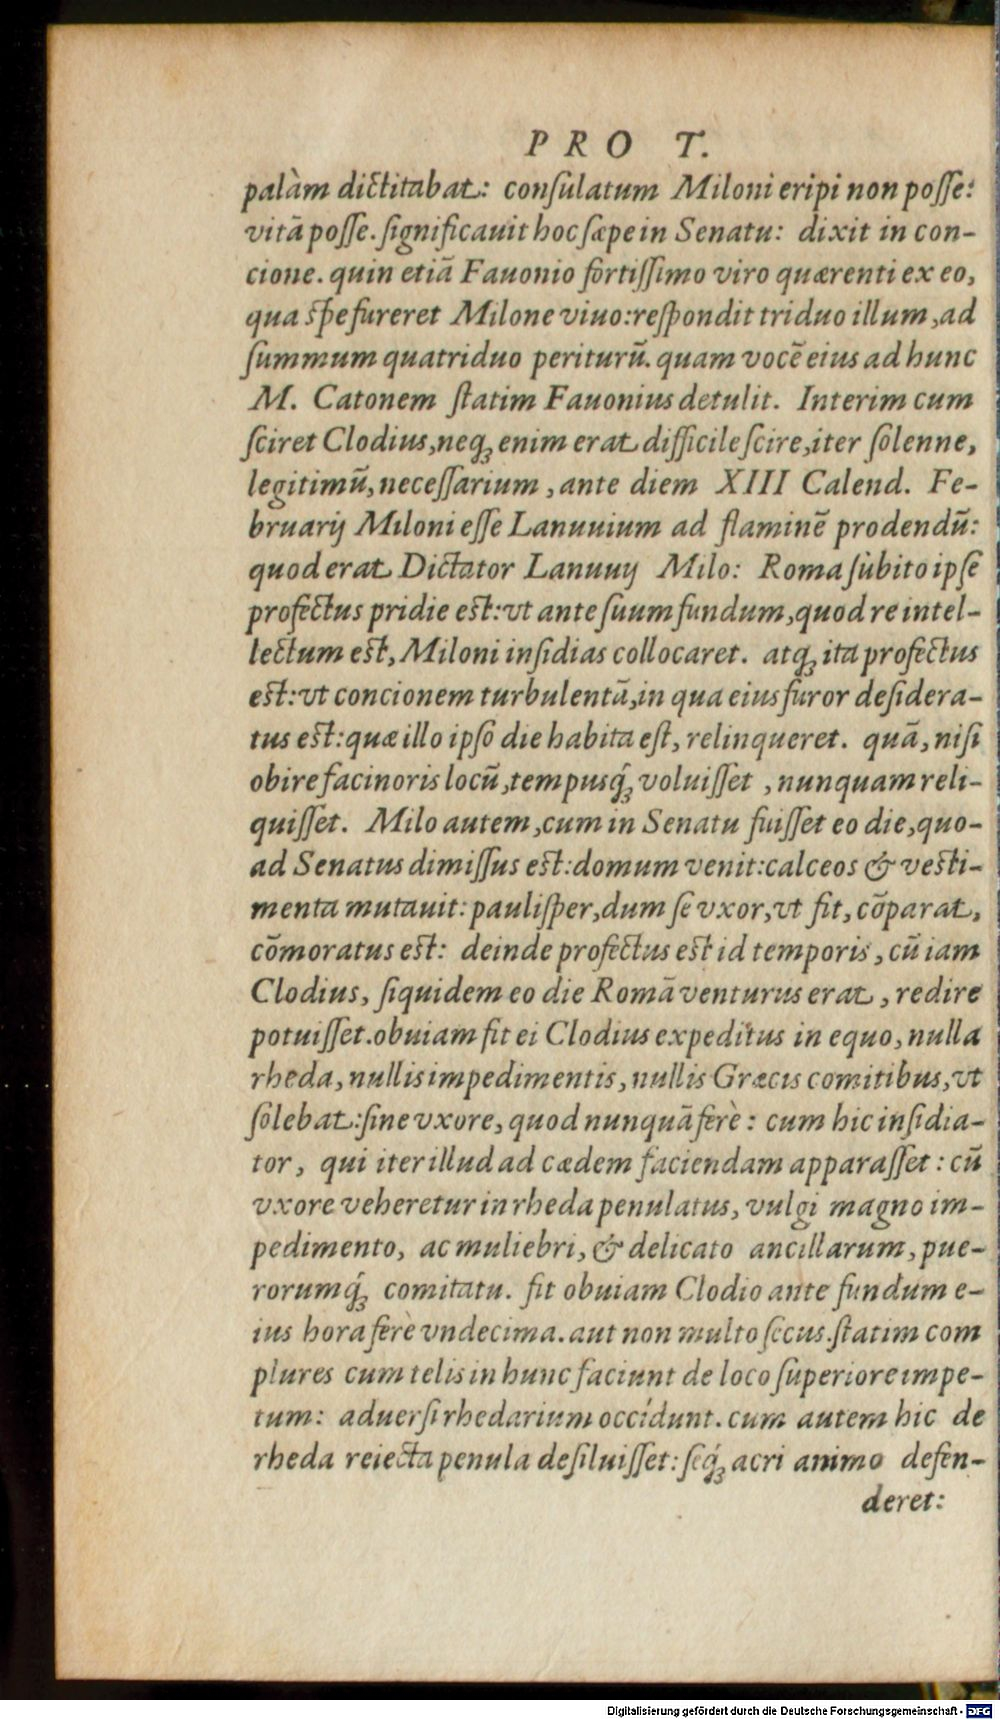 PRO T.
palàm dictitabat: conſulatum Miloni eripi non poſſe:
vitā poſſe. ſignificauit hoc ſæpe in Senatu: dixit in con-
cione. quin etiā Fauonio fortiſſimo viro quærenti ex eo,
qua ſpe fureret Milone viuo: reſpondit triduo illum, ad
ſummum quatriduo periturū. quam vocē eius ad hunc
M. Catonem ſtatim Fauonius detulit. Interim cum
ſciret Clodius, neqꝫ enim erat difficile ſcire, iter ſolenne,
legitimū, neceſſarium, ante diem XIII Calend. Fe-
bruarij Miloni eſſe Lanuuium ad flaminē prodendū:
quod erat Dictator Lanuuij Milo: Roma ſubito ipſe
profectus pridie eſt: vt ante ſuum fundum, quod re intel-
lectum eſt, Miloni inſidias collocaret. atqꝫ ita profectus
eſt: vt concionem turbulentā, in qua eius furor deſidera-
tus eſt: quæ illo ipſo die habita eſt, relinqueret. quā, niſi
obire facinoris locū, tempusq́ꝫ voluiſſet, nunquam reli-
quiſſet. Milo autem, cum in Senatu fuiſſet eo die, quo-
ad Senatus dimiſſus eſt: domum venit: calceos & veſti-
menta mutauit: pauliſper, dum ſe vxor, vt fit, cōparat,
cōmoratus eſt: deinde profectus eſt id temporis, cū iam
Clodius, ſiquidem eo die Romā venturus erat, redire
potuiſſet. obuiam fit ei Clodius expeditus in equo, nulla
rheda, nullis impedimentis, nullis Græcis comitibus, vt
ſolebat: ſine vxore, quod nunquā ferè: cum hic inſidia-
tor, qui iter illud ad cædem faciendam apparaſſet: cū
vxore veheretur in rheda penulatus, vulgi magno im-
pedimento, ac muliebri, & delicato ancillarum, pue-
rorumq́ꝫ comitatu. fit obuiam Clodio ante fundum e-
ius hora ferè vndecima. aut non multo ſecus. ſtatim com
plures cum telis in hunc faciunt de loco ſuperiore impe-
tum: aduerſi rhedarium occidunt. cum autem hic de
rheda reiecta penula deſiluiſſet: ſeq́ꝫ acri animo defen-
deret:
Digitalisierung gefördert durch die Deutsche Forschungsgemeinschaft - DFG